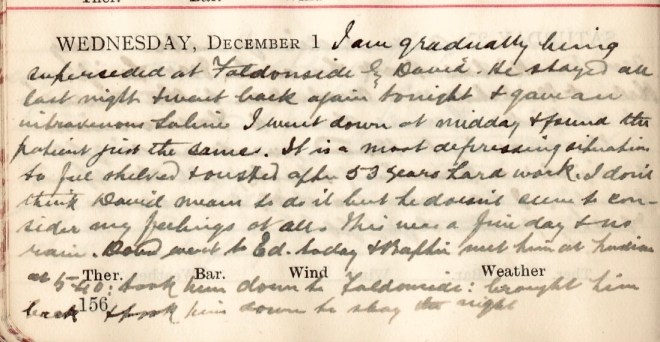 Ther. Bar. Wind
WEDNESDAY, DECEMBER 1 I am gradually being
superseded at Faldonside by David. He stayed all
last night & went back again tonight & gave an
intravenous Saline I went down at midday & found the
patient just the same. It is a most depressing situation
to feel shelved & ousted after 53 years hard work. I don't
think David means to do it but he doesn't seem to con-
sider my feelings at all. This was a fine day & no
rain. David went to Ed. today & met him at
at 5-40: took him down to Faldonside: brought him
Ther. Bar. Wind Weather
156
back & took him down to stay the night